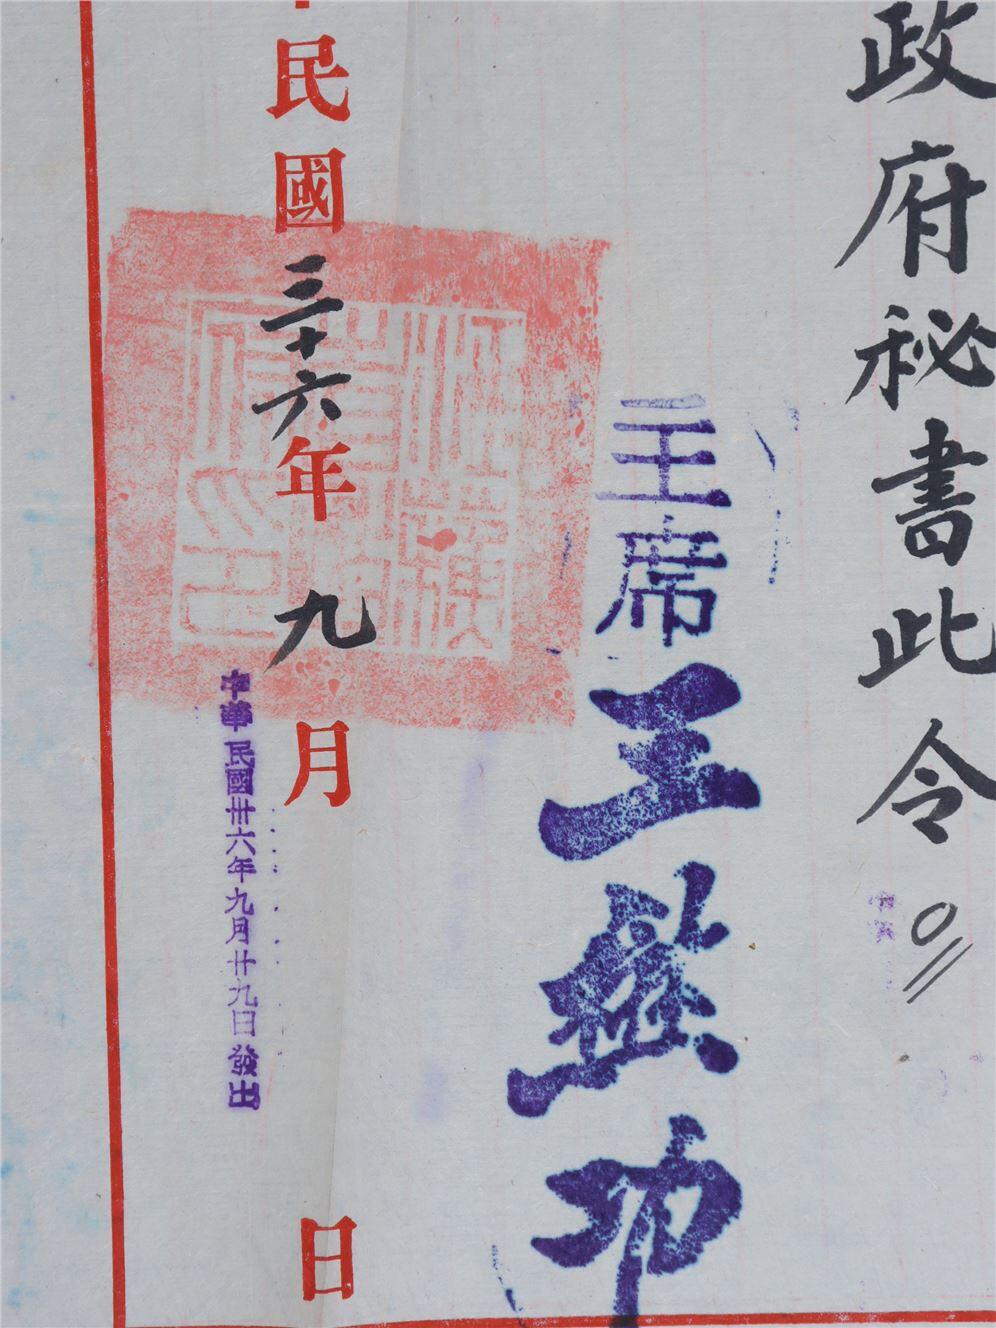 政府秘書此令
主席王懋功
民國三十六年九月 日
中華民國卅六年九月廿九日發出